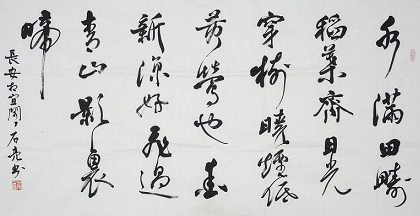 水滿田疇
稻葉齊日光
穿樹曉煙低
黃鶯也愛
新涼好飛過
青山影裏
啼
長安